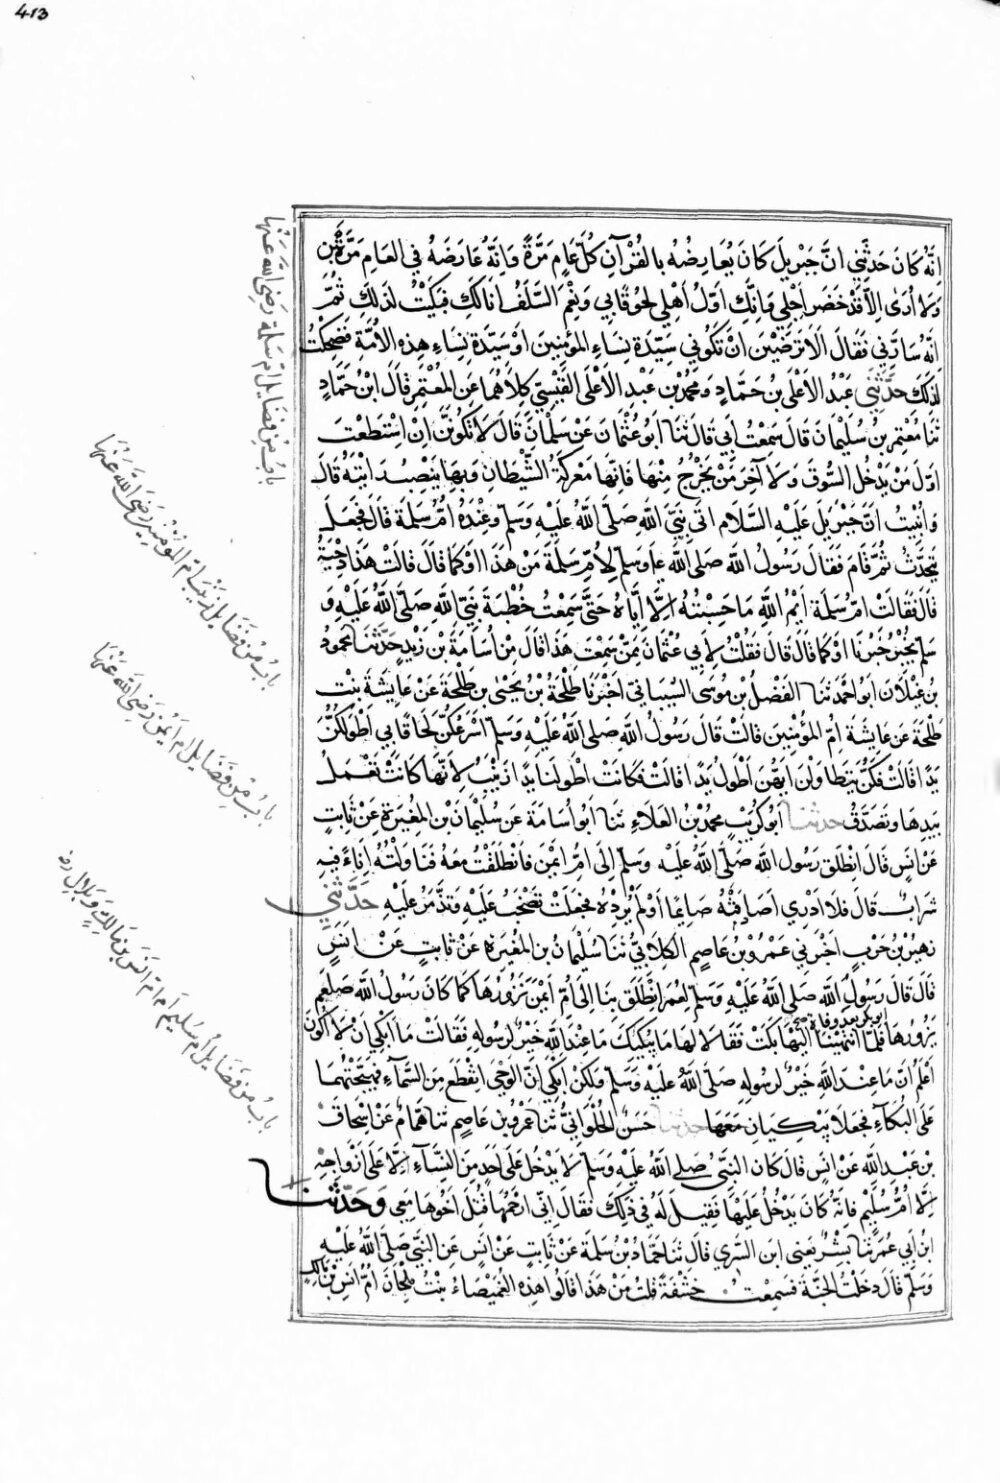 413
انَّهُ كَانَ حَدَّثَنِي انَّ جِبْرِيلَ كَانَ يُعَارِضُهُ بِالقُرْآنِ كُلَّ عَامٍ مَرَّةً وَانَّهُ عَارَضَهُ فِي العَامِ مَرَّتَيْنِ
وَلَا اُرَى اِلَّا قَدْ حَضَرَ اَجَلِي وَانَّكِ اَوَّلُ اَهْلِي لُحُوقًا بِي وَنِعْمَ السَّلَفُ اَنَا لَكِ فَبَكَيْتُ لِذَلِكَ ثُمَّ
اِنَّهُ سَارَّنِي فَقَالَ اَلَا تَرْضَيْنَ اَنْ تَكُونِي سَيِّدَةَ نِسَاءِ المُؤْمِنِينَ اَوْ سَيِّدَةَ نِسَاءِ هَذِهِ الاُمَّةِ فَضَحِكْتُ
لِذَلِكَ حَدَّثَنِي عَبْدُ الاَعْلَى بْنُ حَمَّادٍ وَمُحَمَّدُ بْنُ عَبْدِ الاَعْلَى القَيْسِيُّ كِلَاهُمَا عَنِ المُعْتَمِرِ قَالَ ابْنُ حَمَّادٍ
ثَنَا مُعْتَمِرُ بْنُ سُلَيْمَانَ قَالَ سَمِعْتُ اَبِي قَالَ ثَنَا اَبُو عُثْمَانَ عَنْ سَلْمَانَ قَالَ لَا تَكُونَنَّ اِنْ اسْتَطَعْتَ
اَوَّلَ مَنْ يَدْخُلُ السُّوقَ وَلَا آخِرَ مَنْ يَخْرُجُ مِنْهَا فَاِنَّهَا مَعْرَكَةُ الشَّيْطَانِ وَبِهَا يَنْصِبُ رَايَتَهُ قَالَ
وَاُنْبِئْتُ اَنَّ جِبْرِيلَ عَلَيْهِ السَّلَام اَتَى نَبِيَّ اللهِ صَلَّى اللهُ عَلَيْهِ وَسَلَّم وَعِنْدَهُ اُمُّ سَلَمَةَ قَالَ فَجَعَلَ
يَتَحَدَّثُ ثُمَّ قَامَ فَقَالَ رَسُولُ اللهِ صَلَّى اللهُ عليه وَسَلَّم لِاُمِّ سَلَمَةَ مَنْ هَذَا اَوْ كَمَا قَالَ قَالَتْ هَذَا دِحْيَةُ
قَالَ فَقَالَتْ اُمُّ سَلَمَةَ اَيْمُ اللهِ مَا حَسِبْتُهُ اِلَّا اِيَّاهُ حَتَّى سَمِعْتُ خُطْبَةَ نَبِيِّ اللهِ صَلَّى اللهُ عَلَيْهِ وَ
سَلَّم يُخْبِرُ خَبَرَنَا اَوْ كَمَا قَالَ قَالَ فَقُلْتُ لِاَبِي عُثْمَانَ مِمَّنْ سَمِعْتَ هَذَا قَالَ مِنْ اُسَامَةَ بْنِ زَيْدٍ حَدَّثَنَا مَحْمُودُ
بْنُ غَيْلَانَ اَبُو اَحْمَدَ ثَنَا الفَضْلُ بْنُ مُوسَى السِّينَانِيُّ اَخْبَرَنَا طَلْحَةُ بْنُ يَحْيَى بْنِ طَلْحَةَ عَنْ عَائِشَةَ بِنْتِ
طَلْحَةَ عَنْ عَائِشَةَ اُمِّ المُؤْمِنِينَ قَالَتْ قَالَ رَسُولُ اللهِ صَلَّى اللهُ عَلَيْهِ وَسَلَّم اَسْرَعُكُنَّ لَحَاقًا بِي اَطْوَلُكُنَّ
يَدًا قَالَتْ فَكُنَّ يَتَطَاوَلْنَ اَيَّتُهُنَّ اَطْوَلُ يَدًا قَالَتْ فَكَانَتْ اَطْوَلَنَا يَدًا زَيْنَبُ لِاَنَّهَا كَانَتْ تَعْمَلُ
بِيَدِهَا وَتَصَدَّقُ حدثنا اَبُو كُرَيْبٍ مُحَمَّدُ بْنُ العَلَاءِ ثَنَا اَبُو اُسَامَةَ عَنْ سُلَيْمَانَ بْنِ المُغِيرَةِ عَنْ ثَابِتٍ
عَنْ اَنَسٍ قَالَ انْطَلَقَ رَسُولُ اللهِ صَلَّى اللهُ عَلَيْهِ وَسَلَّم اِلَى اُمِّ اَيْمَنَ فَانْطَلَقْتُ مَعَهُ فَنَاوَلَتْهُ اِنَاءً فِيهِ
شَرَابٌ قَالَ فَلَا اَدْرِي اَصَادَفَتْهُ صَائِمًا اَوْ لَمْ يُرِدْهُ فَجَعَلَتْ تَصْخَبُ عَلَيْهِ وَتَذَمَّرُ عَلَيْهِ حَدَّثَنِي
زُهَيْرُ بْنُ حَرْبٍ اَخْبَرَنِي عَمْرُو بْنُ عَاصِمٍ الكِلَابِيُّ ثَنَا سُلَيْمَانُ بْنُ المُغِيرَةِ عَنْ ثَابِتٍ عَنْ اَنَسٍ
قَالَ قَالَ رَسُولُ اللهِ صَلَّى اللهُ عَلَيْهِ وَسَلَّم لِعُمَرَ انْطَلِقْ بِنَا اِلَى اُمِّ اَيْمَنَ نَزُورُهَا كَمَا كَانَ رَسُولُ اللهِ صلعم
ابو بكر بعد وفاة
يَزُورُهَا فَلَمَّا انْتَهَيْنَا اِلَيْهَا بَكَتْ فَقَالَا لَهَا مَا يُبْكِيكِ مَا عِنْدَ اللهِ خَيْرٌ لِرَسُولِهِ فَقَالَتْ مَا اَبْكِي اَنْ لَا اَكُونَ
اَعْلَمُ اَنَّ مَا عِنْدَ اللهِ خَيْرٌ لِرَسُولِهِ صَلَّى اللهُ عَلَيْهِ وَسَلَّم وَلَكِنْ اَبْكِي اَنَّ الوَحْيَ انْقَطَعَ مِنَ السَّمَآءِ فَهَيَّجَتْهُمَا
عَلَى البُكَآءِ فَجَعَلَا يَبْكِيَانِ مَعَهَا حدثنا حَسَنٌ الحُلْوَانِيُّ ثَنَا عَمْرُو بْنُ عَاصِمٍ ثَنَا هَمَّامٌ عَنْ اِسْحَاقَ
بْنِ عَبْدِ اللهِ عَنْ اَنَسٍ قَالَ كَانَ النَّبِيُّ صَلَّى اللهُ عَلَيْهِ وَسَلَّم لَا يَدْخُلُ عَلَى اَحَدٍ مِنَ النِّسَآءِ اِلَّا عَلَى اَزْوَاجِهِ
اِلَّا اُمِّ سُلَيْمٍ فَاِنَّهُ كَانَ يَدْخُلُ عَلَيْهَا فَقِيلَ لَهُ فِي ذَلِكَ فَقَالَ اِنِّي اَرْحَمُهَا قُتِلَ اَخُوهَا مَعِي وَحَدَّثَنَا
ابْنُ اَبِي عُمَرَ ثَنَا بِشْرٌ يَعْنِي ابْنَ السَّرِيِّ قَالَ ثَنَا حَمَّادُ بْنُ سَلَمَةَ عَنْ ثَابِتٍ عَنْ اَنَسٍ عَنِ النَّبِيِّ صَلَّى اللهُ عَلَيْهِ
وَسَلَّم قَالَ دَخَلْتُ الجَنَّةَ فَسَمِعْتُ خَشْفَةً قُلْتُ مَنْ هَذَا قَالُوا هَذِهِ الغُمَيْصَاءُ بِنْتُ مِلْحَانَ اُمُّ اَنَسِ بْنِ مَالِكٍ
بابُ مِنْ فَضَايِلِ امِّ سَلَمَةَ رَضِيَ اللهُ عَنْهَا
بابُ مِنْ فَضَايِلِ زَيْنَبَ امِّ المُؤْمِنِينَ رَضِيَ اللهُ عَنْهَا
بابُ مِنْ فَضَايِلِ ام اَيْمَنَ رَضِيَ اللهُ عَنْهَا
بابُ مِنْ فَضَايِلِ اُمِّ سُلَيْمٍ اُمِّ انَسِ بْنِ مَالِكٍ وَبِلَالٍ رض